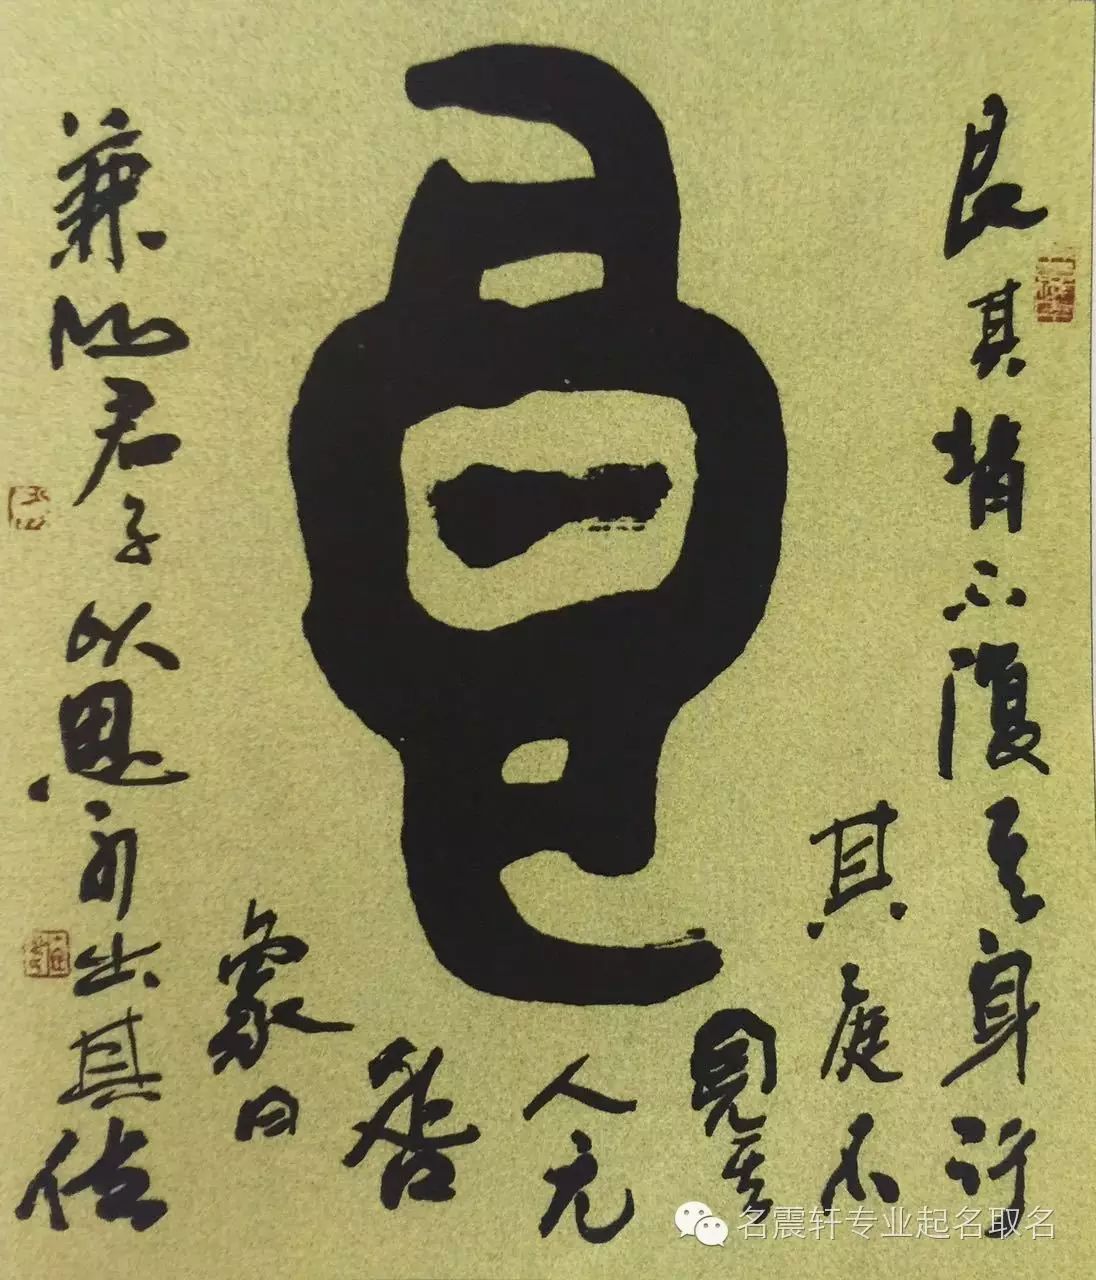 艮其背不獲其身行
其庭不
見其
人无
咎
象曰
兼山君子以思不出其位
名震轩专业起名取名